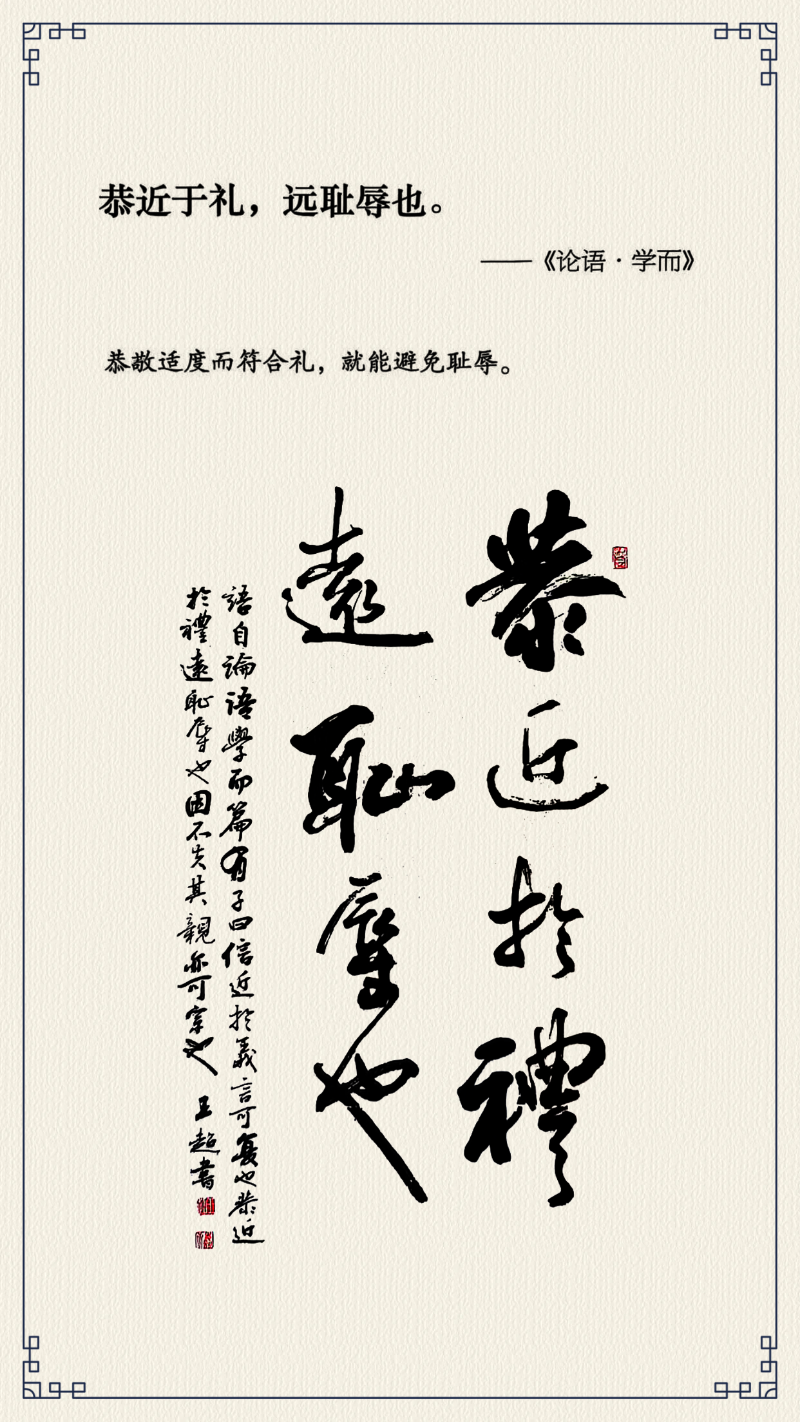 恭近于礼，远耻辱也。
——《论语·学而》
恭敬适度而符合礼，就能避免耻辱。
恭近於禮
遠耻辱也
語自論語學而篇有子曰信近於義言可复也恭近
於禮遠耻辱也因不失其親亦可宗也 王超書